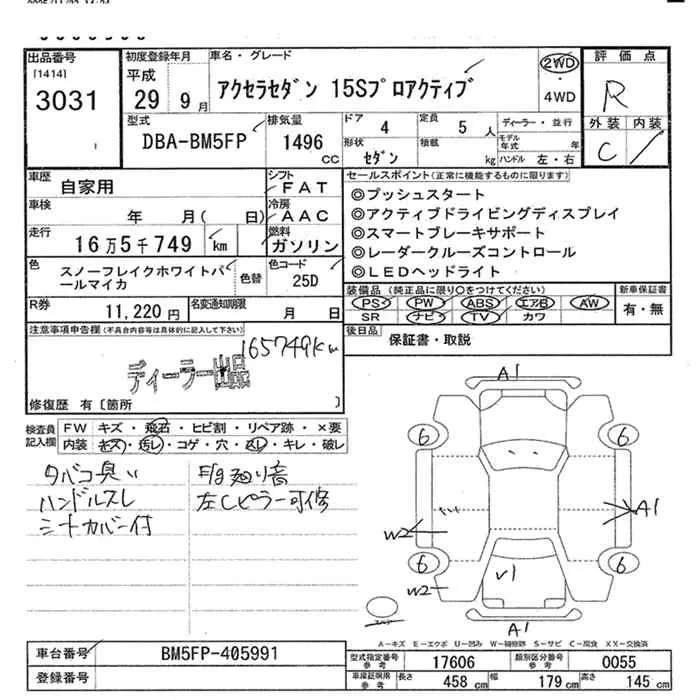 出品番号
[1414]
3031
初度登録年月
平成
29 9月
車名・グレード
アクセラセダン 15Sプロアクティブ
2WD
・
4WD
評価点
R
外装 内装
C
型式
DBA-BM5FP
排気量
1496
cc
ドア
4
定員
5人
ディーラー・並行
モデル年式 年
形状
セダン
積載
kg
ハンドル 左・右
車歴
自家用
シフト
FAT
車検
年 月( 日)
冷房
AAC
走行
16万5千749 km
燃料
ガソリン
色
スノーフレイクホワイトパールマイカ
色替
色コード
25D
R券
11,220円
名変通知期限
月 日
セールスポイント(正常に機能するものに限ります)
◎プッシュスタート
◎アクティブドライビングディスプレイ
◎スマートブレーキサポート
◎レーダークルーズコントロール
◎LEDヘッドライト
装備品(純正品に限り〇をつけてください)
PS PW ABS エアB AW
SR ナビ TV カワ
新車保証書
有・無
後日品
保証書・取説
注意事項申告欄(不具合内容等は具体的に記入して下さい)
165749km
ディーラー出品
修復歴 有〔箇所 〕
検査員記入欄
FW キズ・飛石・ヒビ割・リペア跡・×要
内装 キズ・汚レ・コゲ・穴・スレ・キレ・破レ
タバコ臭い
ハンドルスレ
シートカバー付
F/g廻り音
左Cピラー可修
A1
6
6
A1
W2
6
6
W2
V1
A1
A-キズ E-エクボ U-凹み W-補修跡 S-サビ C-腐食 XX-交換済
車台番号
BM5FP-405991
登録番号
型式指定番号
参考
17606
類別区分番号
参考
0055
車検証現用
参考
長さ
458 cm
幅
179 cm
高さ
145 cm